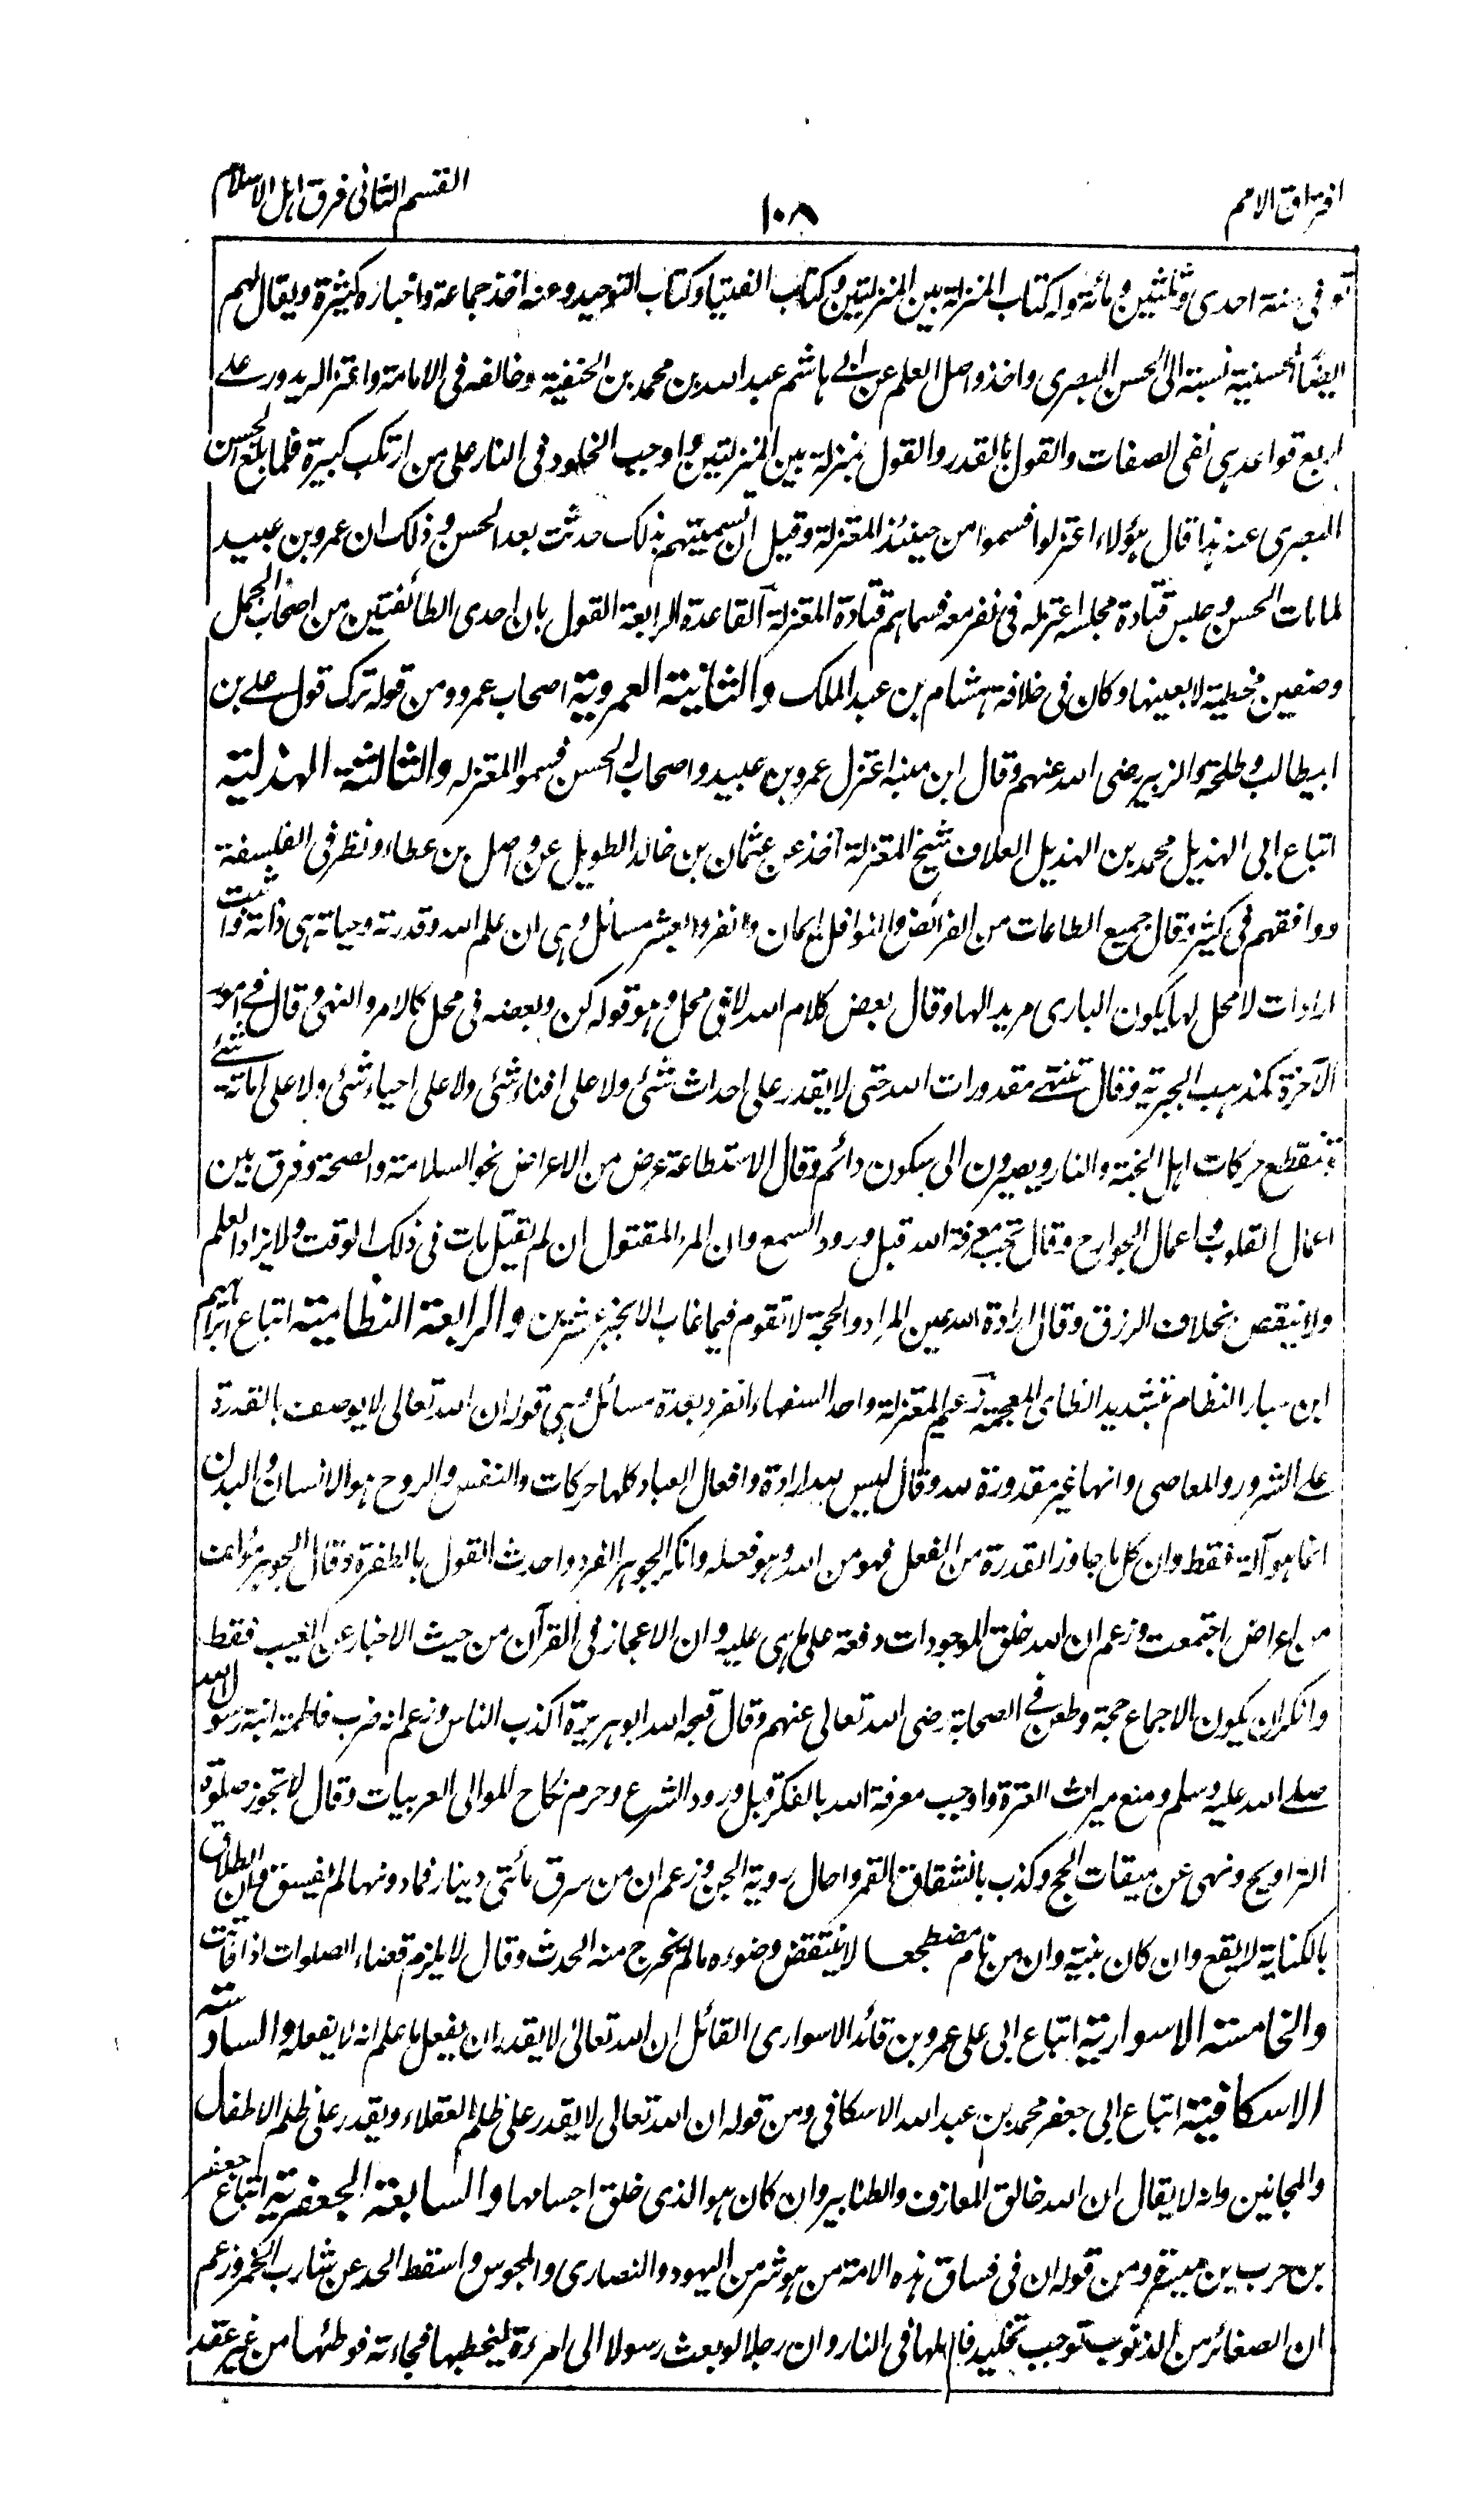 افتراق الامم
١٠٨
القسم الثانى فرق اہل الاسلام
توفى سنة احدى وثلثين ومائة وله كتاب المنزلة بين المنزلتين وكتاب الفتيا وكتاب التوحيد وعنه اخذ جماعة واخباره كثيرة ويقال لهم
ايضا الحسنية نسبة الى الحسن البصرى واخذ واصل العلم عن ابى هاشم عبد الله بن محمد بن الحنفية وخالفه فى الامامة واعتزاله يدور على
اربع قواعد هى نفى الصفات والقول بالقدر والقول بمنزلة بين المنزلتين واوجب الخلود فى النار على من ارتكب كبيرة فلما بلغ الحسن
البصرى عنه هذا قال هؤلاء اعتزلوا فسموا من حينئذ المعتزلة وقيل ان تسميتهم بذلك حدثت بعد الحسن وذلك ان عمرو بن عبيد
لما مات الحسن وجلس قتادة مجلسه اعتزله فى نفر معه فسماهم قتادة المعتزلة القاعدة الرابعة القول بان احدى الطائفتين من اصحاب الجمل
وصفين مخطية لا بعينها وكان فى خلافة هشام بن عبد الملك والثانية العمروية اصحاب عمرو ومن قوله ترك قول على بن
ابيطالب وطلحة والزبير رضى الله عنهم وقال ابن منبه اعتزل عمرو بن عبيد واصحاب له الحسن فسموا المعتزله والثالثة الهذلية
اتباع ابى الهذيل محمد بن الهذيل العلاف شيخ المعتزلة اخذ عن عثمان بن خالد الطويل عن واصل بن عطاء ونظر فى الفلسفة
ووافقهم فى كثير وقال جميع الطاعات من الفرائض والنوافل ايمان وانفرد بعشر مسائل وهى ان علم الله وقدرته وحياته هى ذاته واثبت
ارادات لا محل لها يكون البارى مريدا لها وقال بعض كلام الله لا فى محل وهو قوله كن وبعضه فى محل كالامر والنهى وقال فى امور
الآخرة كمذهب الجبرية وقال تنتهى مقدورات الله حتى لا يقدر على احداث شئ ولا على افناء شئ ولا على احياء شئ ولا على اماتة شئ
تنقطع حركات اهل الجنة والنار ويصيرون الى سكون دائم وقال الاستطاعة عرض من الاعراض نحو السلامة والصحة وفرق بين
اعمال القلوب واعمال الجوارح وقال تجب معرفة الله قبل ورود السمع وان المرء المقتول ان لم يقتل مات فى ذلك الوقت ولا يزاد العلم
ولا ينقص بخلاف الرزق وقال ارادة الله عين المراد والحجة لا تقوم فيما غاب الا بخبر عشرين والرابعة النظامية اتباع ابراهيم
ابن سيار النظام بتشديد الظاى المعجمة زعيم المعتزلة واحد السفهاء انفرد بعدة مسائل وهى قوله ان الله تعالى لا يوصف بالقدرة
على الشرور والمعاصى وانها غير مقدورة لله وقال ليس لله ارادة وافعال العباد كلها حركات والنفس والروح هو الانسان والبدن
انما هو آلة فقط وان كل ما جاوز القدرة من الفعل فهو من الله وهو فعله وانكر الجوهر الفرد واحدث القول بالطفرة وقال الجوهر مؤلف
من اعراض اجتمعت وزعم ان الله خلق الموجودات دفعة على ما هى عليه وان الاعجاز فى القرآن من حيث الاخبار عن الغيب فقط
وانكر ان يكون الاجماع حجة وطعن فى الصحابة رضى الله تعالى عنهم وقال قبحه الله ابو هريرة اكذب الناس وزعم انه ضرب فاطمة ابنة رسول الله
صلى الله عليه وسلم ومنع ميراث العترة واوجب معرفة الله بالفكر قبل ورود الشرع وحرم نكاح الموالى العربيات وقال لا تجوز صلوة
التراويح ونهى عن ميقات الحج وكذب بانشقاق القمر واحال روية الجن وزعم ان من سرق مائتى دينار فما دونها لم يفسق وان الطلاق
بالكناية لا يقع وان كان بنية وان من نام مضطجعا لا ينتقض وضوءه ما لم يخرج منه الحدث وقال لا يلزم قضاء الصلوات اذا فاتت
والخامسة الاسوارية اتباع ابى على عمرو بن قائد الاسوارى القائل ان الله تعالى لا يقدر ان يفعل ما علم انه لا يفعله والسادسة
الاسكافية اتباع ابى جعفر محمد بن عبد الله الاسكافى ومن قوله ان الله تعالى لا يقدر على ظلم العقلاء ويقدر على ظلم الاطفال
والمجانين وانه لا يقال ان الله خالق المعازف والطنابير وان كان هو الذى خلق اجسامها والسابعة الجعفرية اتباع جعفر
بن حرب بن ميسرة ومن قوله ان فى فساق هذه الامة من هو شر من اليهود والنصارى والمجوس واسقط الحد عن شارب الخمر وزعم
ان الصغائر من الذنوب توجب تخليد فاعلها فى النار وان رجلا لو بعث رسولا الى امرءة ليخطبها فجاءته فوطئها من غير عقد